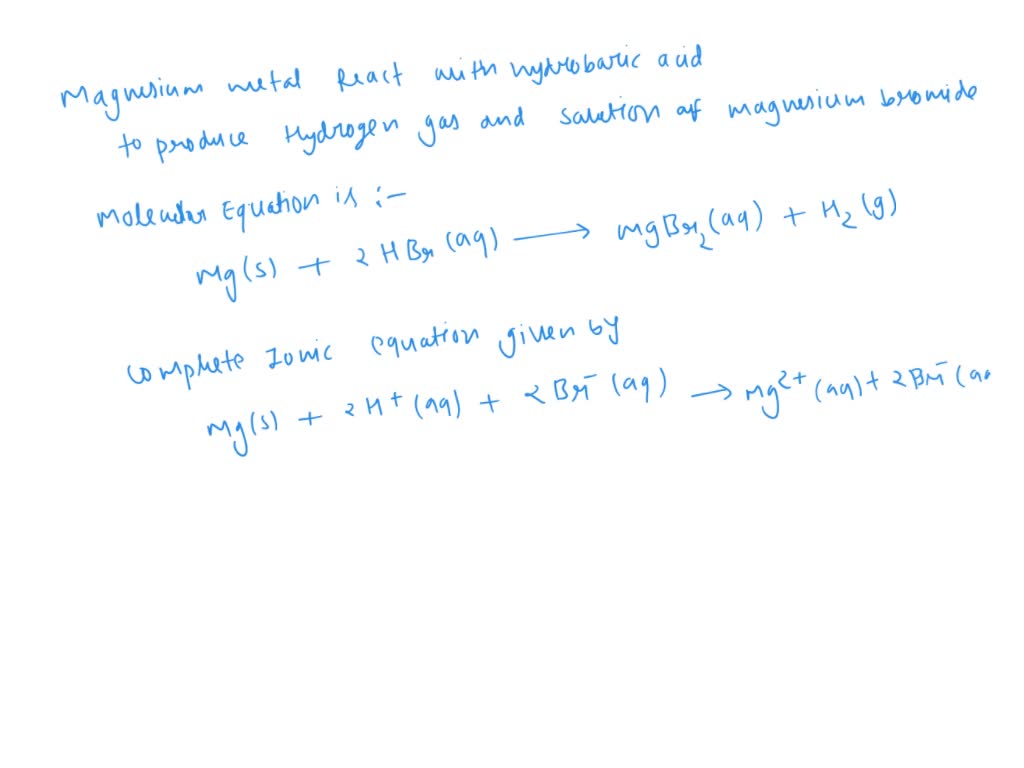 Magnesium metal React with hydrobaric acid
to produce Hydrogen gas and salution of magnesium bromide
Molecular Equation is :-
Mg(s) + 2 HBr (aq) ⟶ MgBr₂(aq) + H₂(g)
Complete Ionic equation given by
Mg(s) + 2H⁺(aq) + 2Br⁻(aq) → Mg²⁺(aq) + 2Br⁻(aq